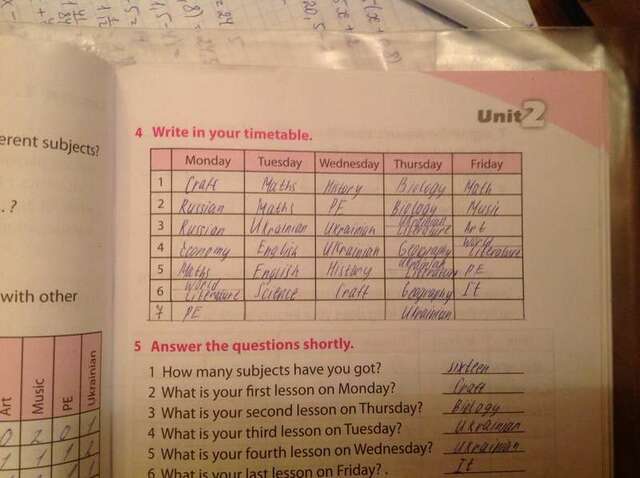 Unit 2
erent subjects?
.. ?
with other
Art Music PE Ukrainian
0 2 0 1
1 1 1 2
4 Write in your timetable.
Monday Tuesday Wednesday Thursday Friday
1 Craft Maths History Biology Math
2 Russian Maths PE Biology Music
3 Russian Ukrainian Ukrainian Ukrainian Literature Art
4 Economy English Ukrainian Geography World Literature
5 Maths English History Ukrainian Literature PE
6 World Literature Science Craft Geography It
7 PE Ukrainian
5 Answer the questions shortly.
1 How many subjects have you got? sixteen
2 What is your first lesson on Monday? Craft
3 What is your second lesson on Thursday? Biology
4 What is your third lesson on Tuesday? Ukrainian
5 What is your fourth lesson on Wednesday? Ukrainian
6 What is your last lesson on Friday? . It